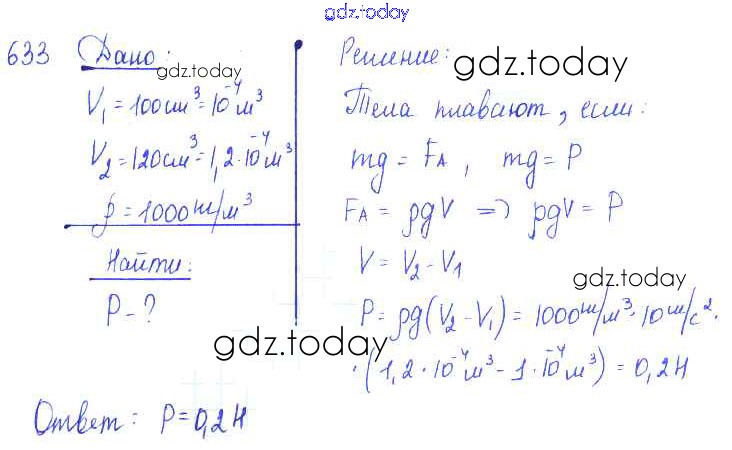 gdz.today
633 Дано:
gdz.today
V₁ = 100см³ = 10⁻⁴м³
V₂ = 120см³ = 1,2·10⁻⁴м³
ρ = 1000кг/м³
Найти:
P - ?
Решение:
gdz.today
Тела плавают, если:
mg = FA, mg = P
FA = ρgV => ρgV = P
V = V₂ - V₁
gdz.today
P = ρg(V₂ - V₁) = 1000кг/м³·10м/с²·
·(1,2·10⁻⁴м³ - 1·10⁻⁴м³) = 0,2Н
gdz.today
Ответ: P = 0,2Н